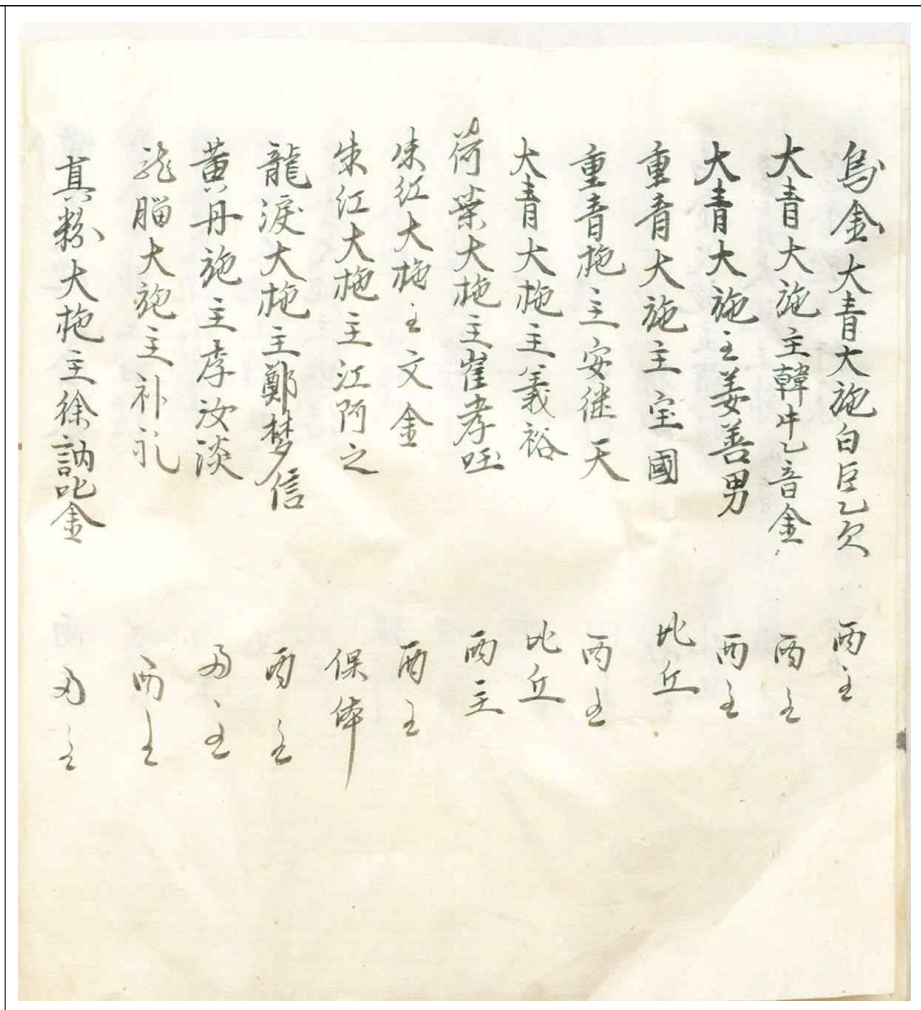 烏金大青大施白巨乙欠 両主
大青大施主韓牛乙音金 両主
大青大施主姜善男 両主
重青大施主宝國 比丘
重青施主安继天 両主
大青大施主義裕 比丘
荷葉大施主崔孝 両主
朱紅大施主文金 両主
朱江大施主江阿之 保体
龍淚大施主鄭梦信 両主
黄丹施主李汝淡 両主
龍腦大施主朴礼 両主
真粉大施主徐訥叱金 両主